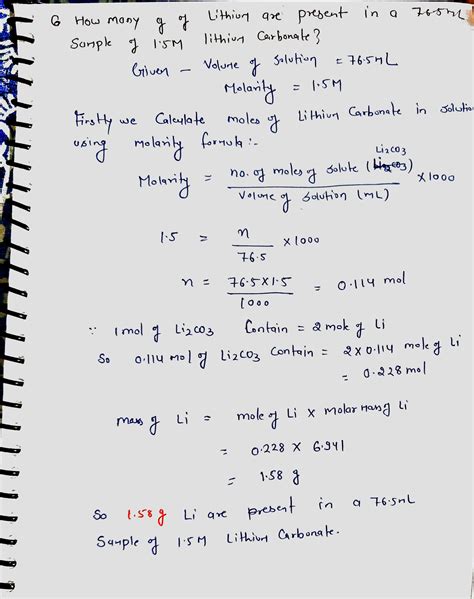 Q How many g of Lithium are present in a 76.5mL
Sample of 1.5M lithium Carbonate?
Given - Volume of solution = 76.5mL
Molarity = 1.5M
Firstly we Calculate moles of Lithium Carbonate in solution
using molarity formula:-
Li2CO3
Molarity = no. of moles of solute / Volume of solution (mL) × 1000
1.5 = n / 76.5 × 1000
n = 76.5×1.5 / 1000 = 0.114 mol
∵ 1mol of Li2CO3 Contain = 2 mole of Li
So 0.114 mol of Li2CO3 Contain = 2×0.114 mole of Li
= 0.228 mol
mass of Li = mole of Li × molar Mass of Li
= 0.228 × 6.941
= 1.58 g
So 1.58g Li are present in a 76.5mL
Sample of 1.5M Lithium Carbonate.